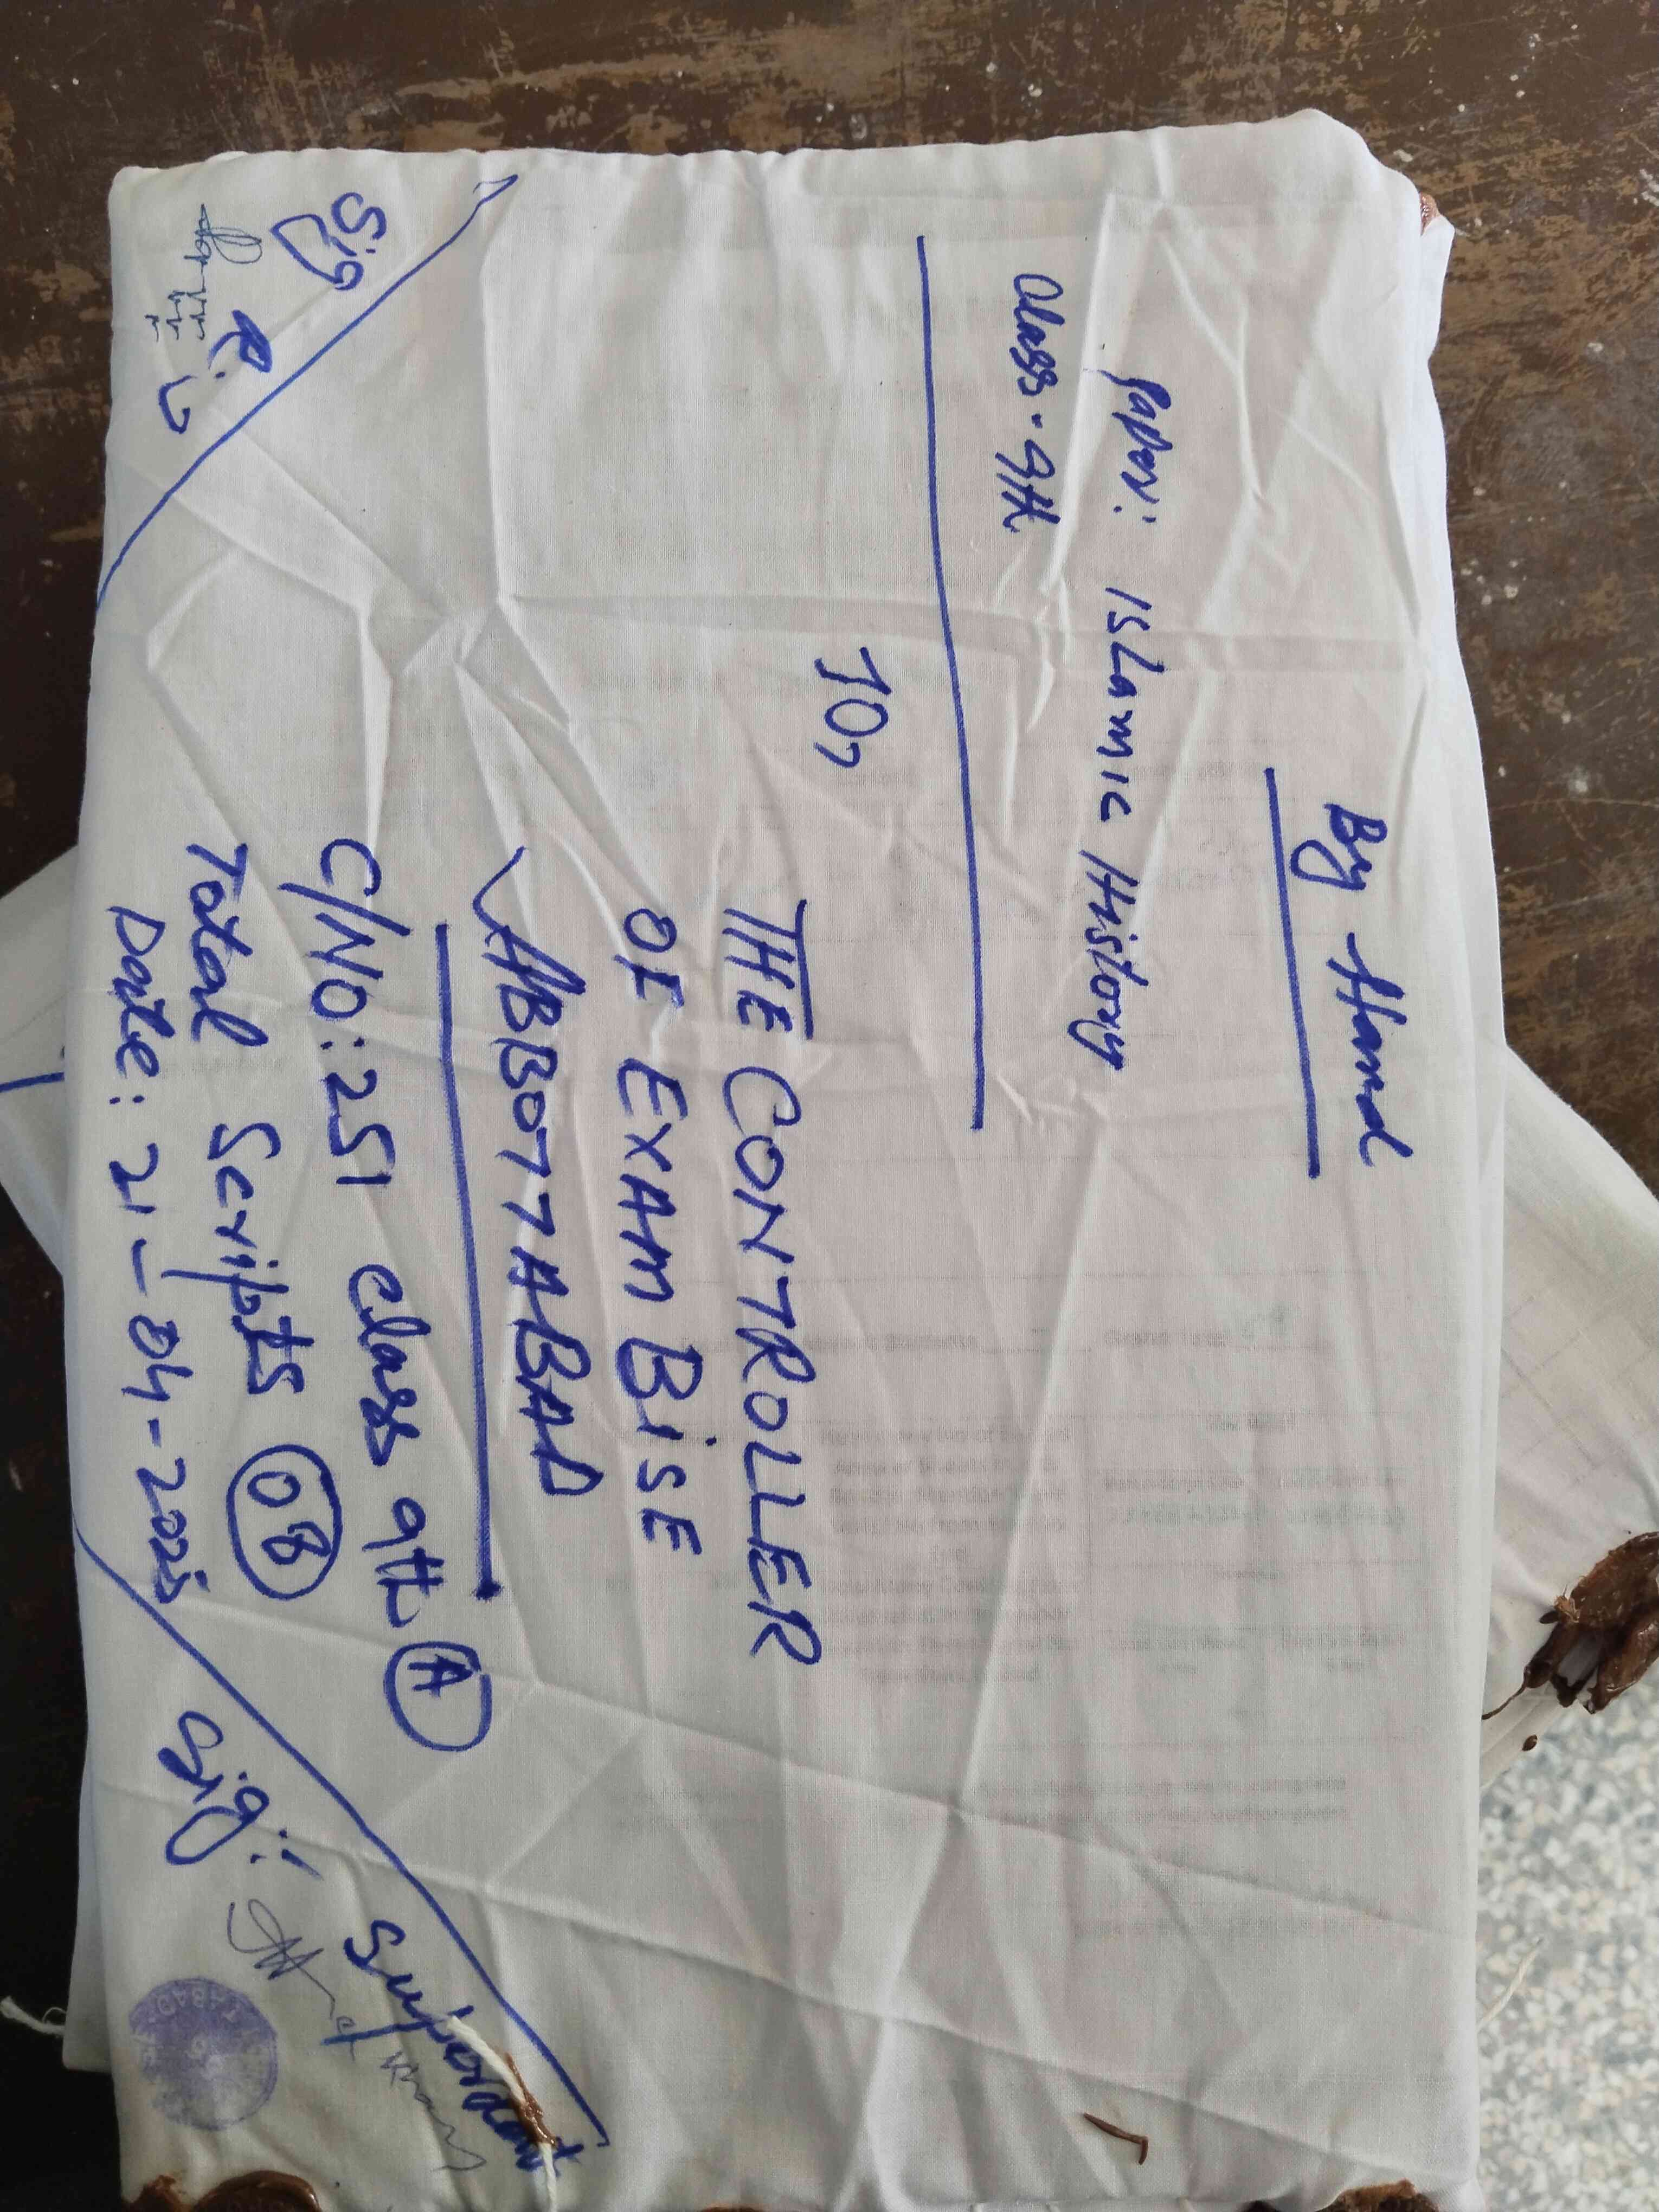 By Hand
Paper: Islamic History
Class - 9th
To,
THE CONTROLLER
OF EXAM BiSE
ABBOTTABAD
C/NO: 251 class 9th A
Total Scripts 08
Date: 21-04-2025
Sig R.I
Sig: Suprdent